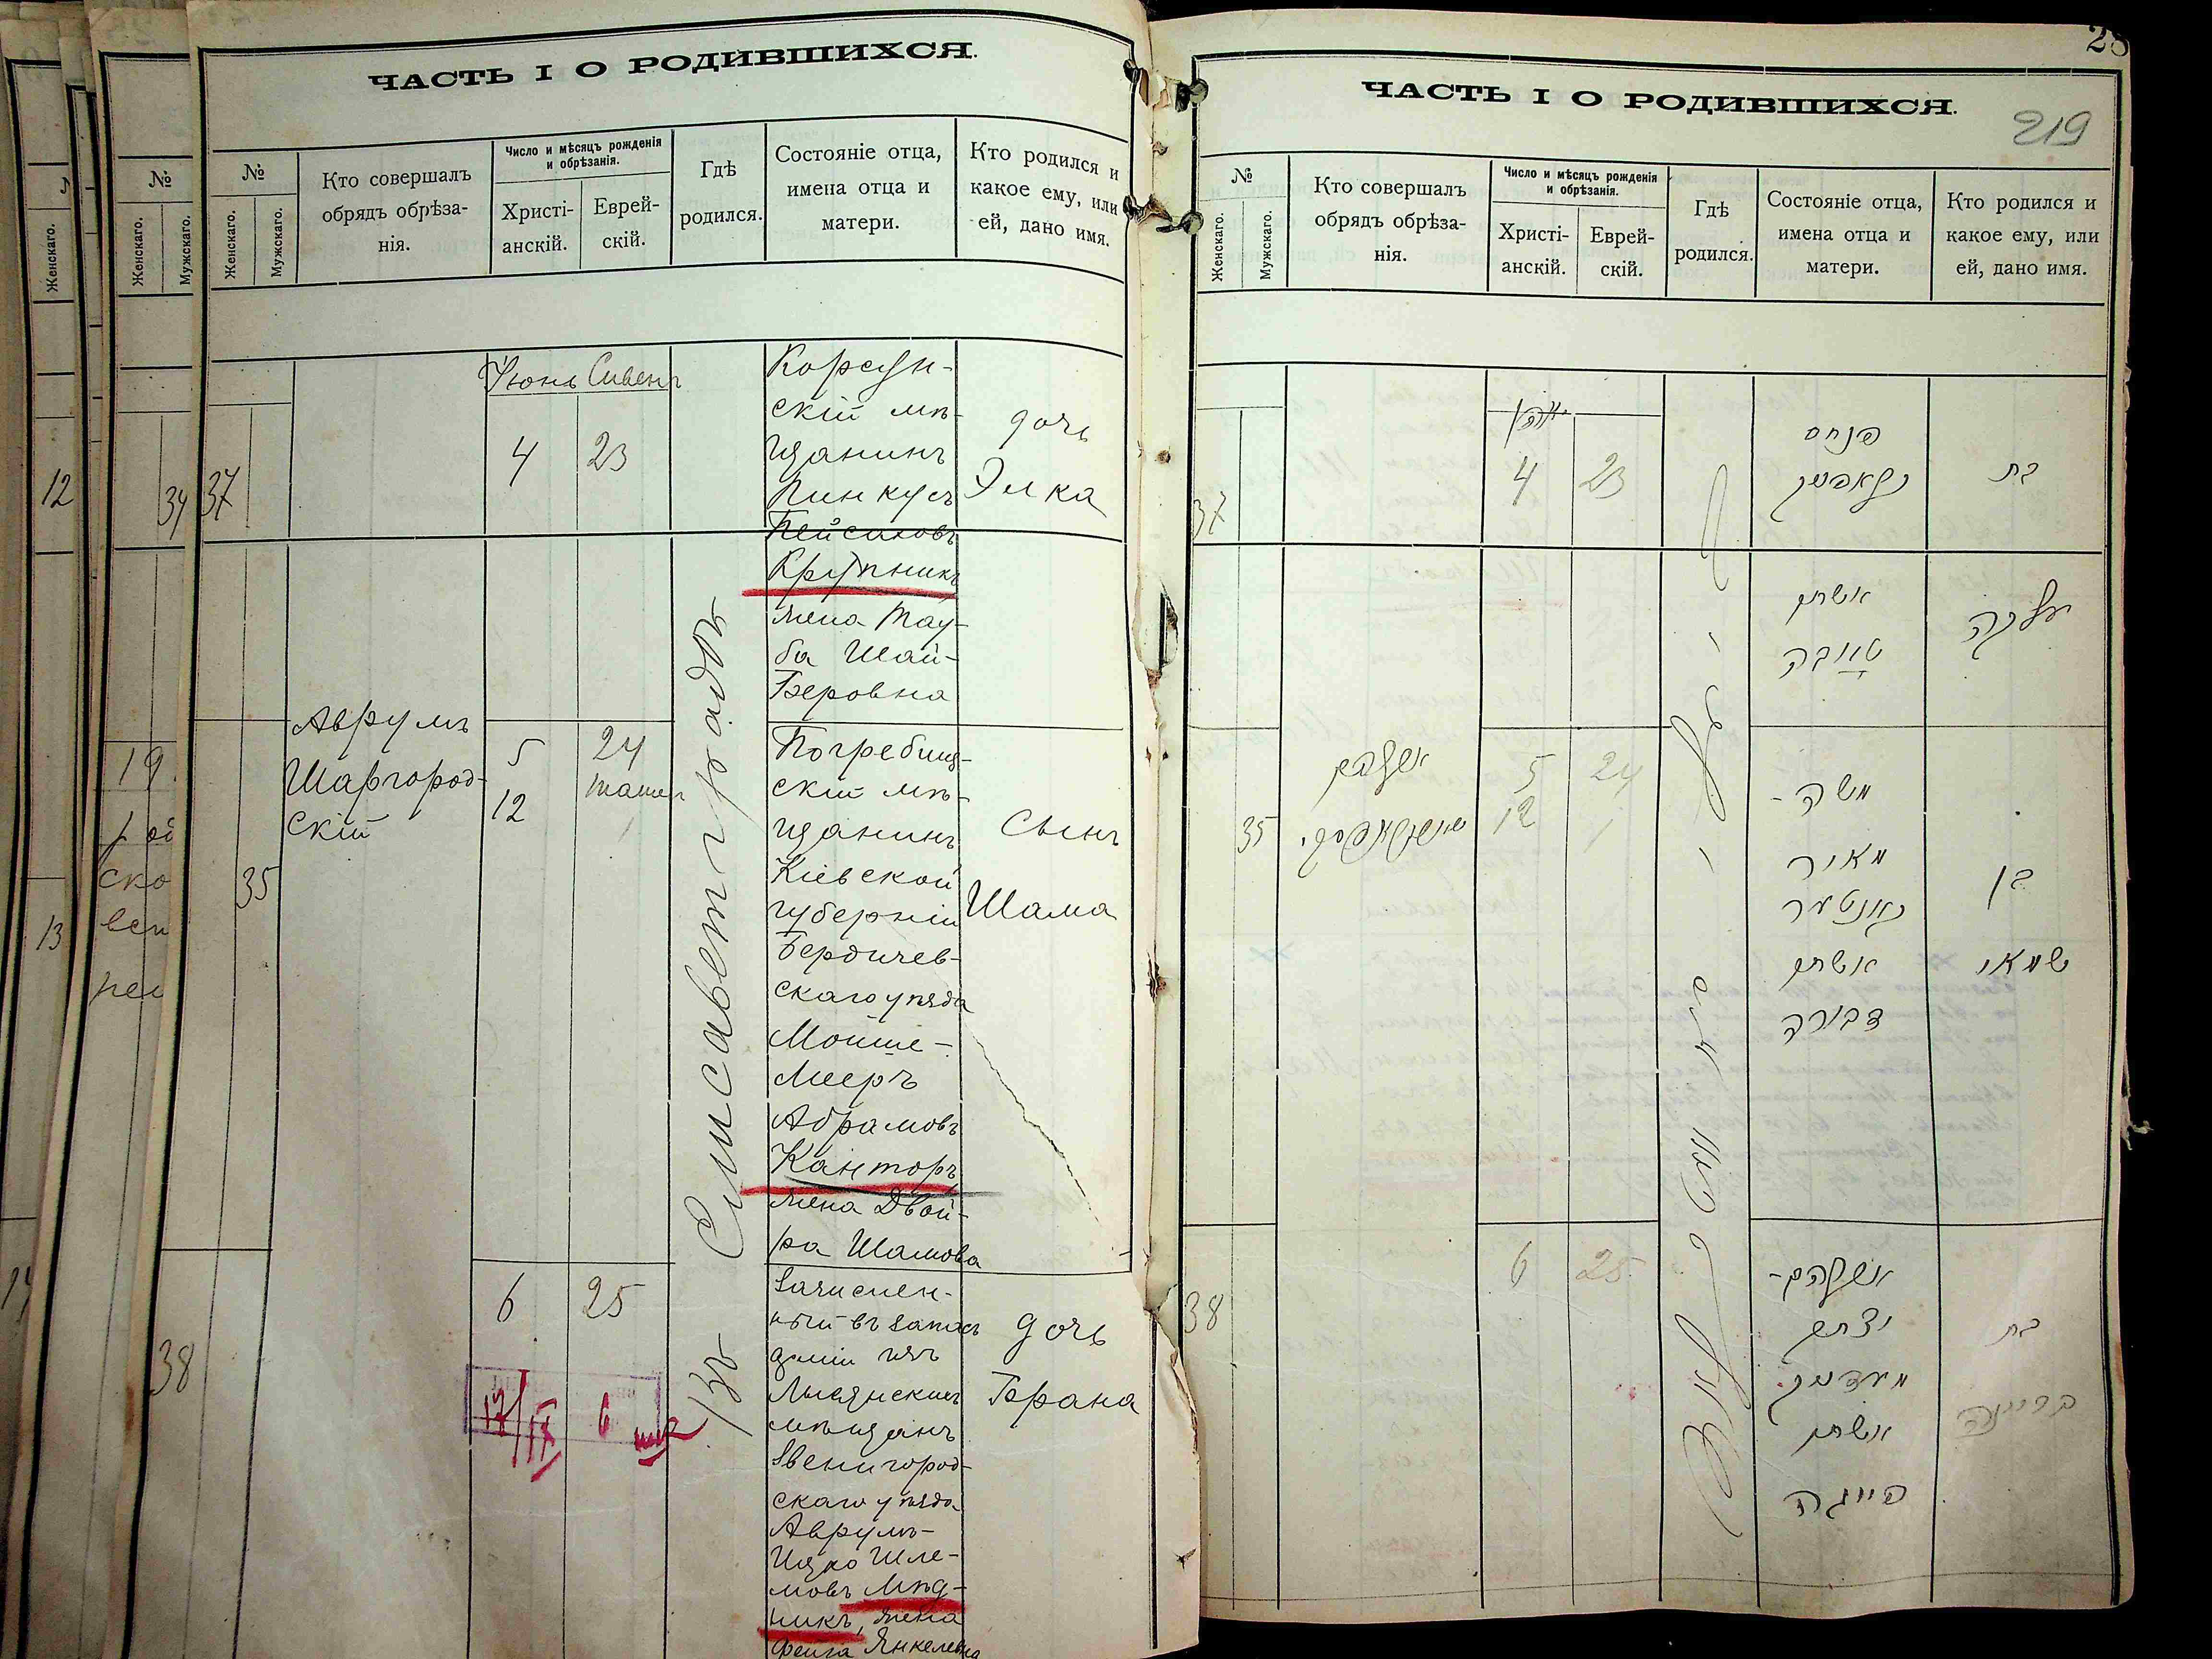 ЧАСТЬ I О РОДИВШИХСЯ.
№
Женскаго.
Мужскаго.
Кто совершалъ
обрядъ обрѣза-
нія.
Число и мѣсяцъ рожденія
и обрѣзанія.
Христі-
анскій.
Еврей-
скій.
Гдѣ
родился.
Состояніе отца,
имена отца и
матери.
Кто родился и
какое ему, или
ей, дано имя.
37
Іюнь Сивенъ
4
23
Корсун-
скій мѣ-
щанинъ
Пинкусъ
Пейсаховъ
Крупникъ
жена Тау-
ба Шай-
Беровна
дочь
Элка
35
Аврумъ
Шаргород-
скій
5
24
12
1
Въ Елисаветградѣ
Погребищ-
скій мѣ-
щанинъ
Кіевской
губерніи
Бердичев-
скаго уѣзда
Мойше-
Мееръ
Абрамовъ
Канторъ
жена Двой-
ра Шамова
Сынъ
Шама
38
6
25
Зачислен-
ный въ запасъ
арміи изъ
Лисянскихъ
мѣщанъ
Звенигород-
скаго уѣзда
Аврумъ-
Ицко Шле-
мовъ Мѣд-
никъ, жена
Фейга Янкелевна
дочь
Брана
ЧАСТЬ I О РОДИВШИХСЯ.
219
№
Женскаго.
Мужскаго.
Кто совершалъ
обрядъ обрѣза-
нія.
Число и мѣсяцъ рожденія
и обрѣзанія.
Христі-
анскій.
Еврей-
скій.
Гдѣ
родился.
Состояніе отца,
имена отца и
матери.
Кто родился и
какое ему, или
ей, дано имя.
37
4
23
פנחס
אשתו
טויבה
בת
עלקה
35
אברהם
5
24
12
1
משה-
מאיר
קאנטער
אשתו
דבורה
בן
שמאי
38
6
25
אברהם-
יצחק
מעדניק
אשתו
פייגה
בת
בריינה
Женскаго.
12
13
№
Женскаго.
Мужскаго.
34
19